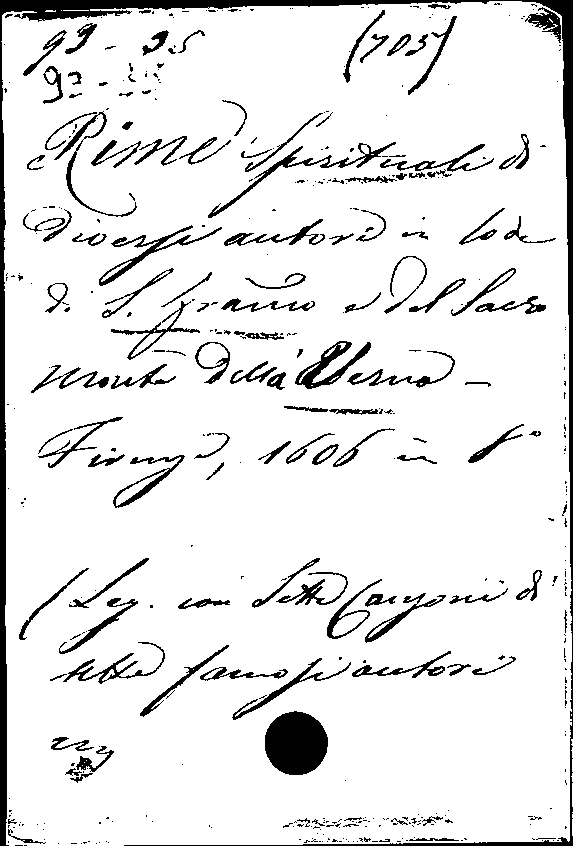 93 - 35 (705)
93 - 35
Rime Spirituali di
diversi autori in lode
di S. Franco e del Sacro
monte della Verna -
Firenze, 1606 in 8°
(Leg. con Sette Canzoni di
sette famosi autori